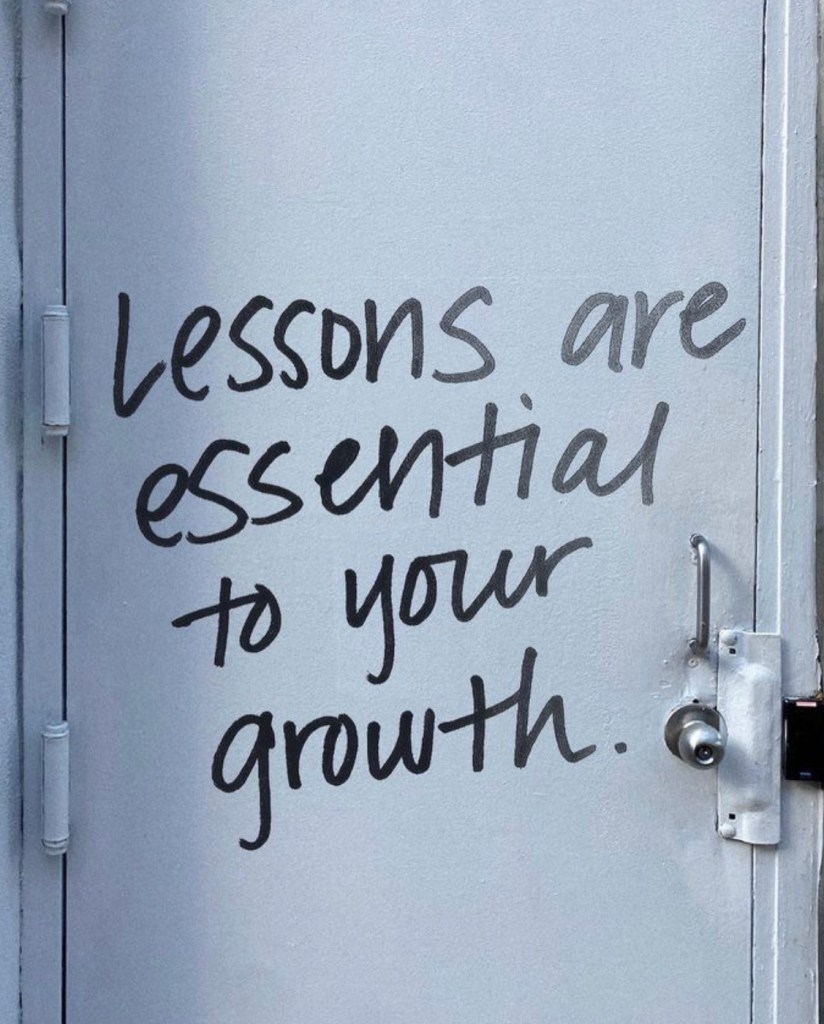 Lessons are
essential
to your
growth.